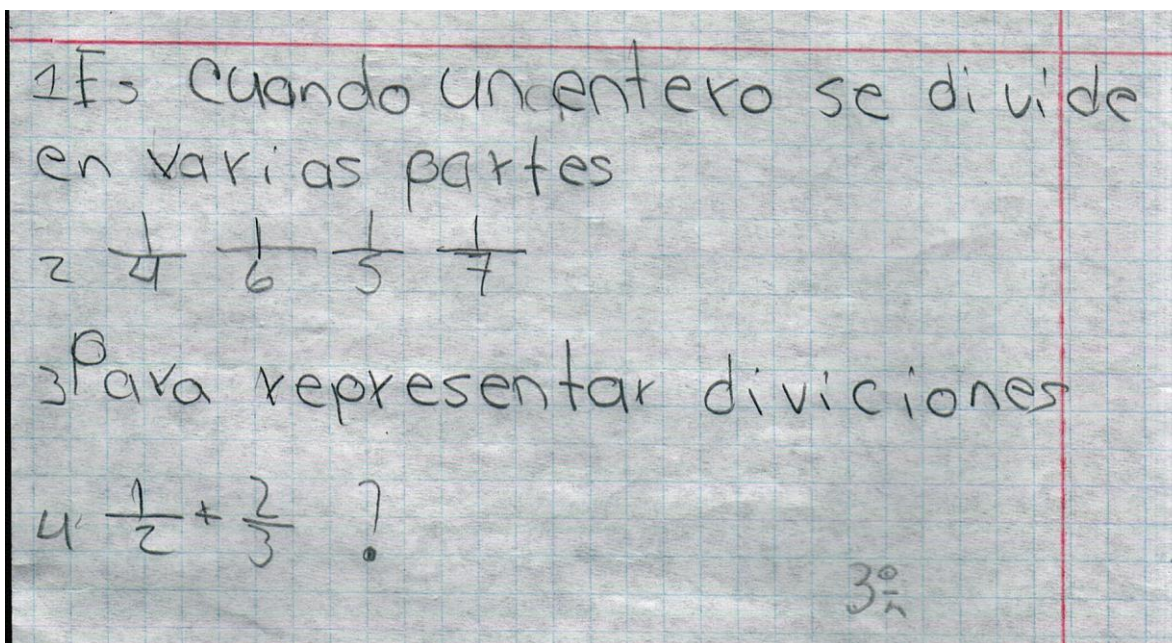 1 Es cuando un entero se divide
en varias partes
2 1/4 1/6 1/5 1/7
3 Para representar diviciones
4 1/2 + 2/3 ?